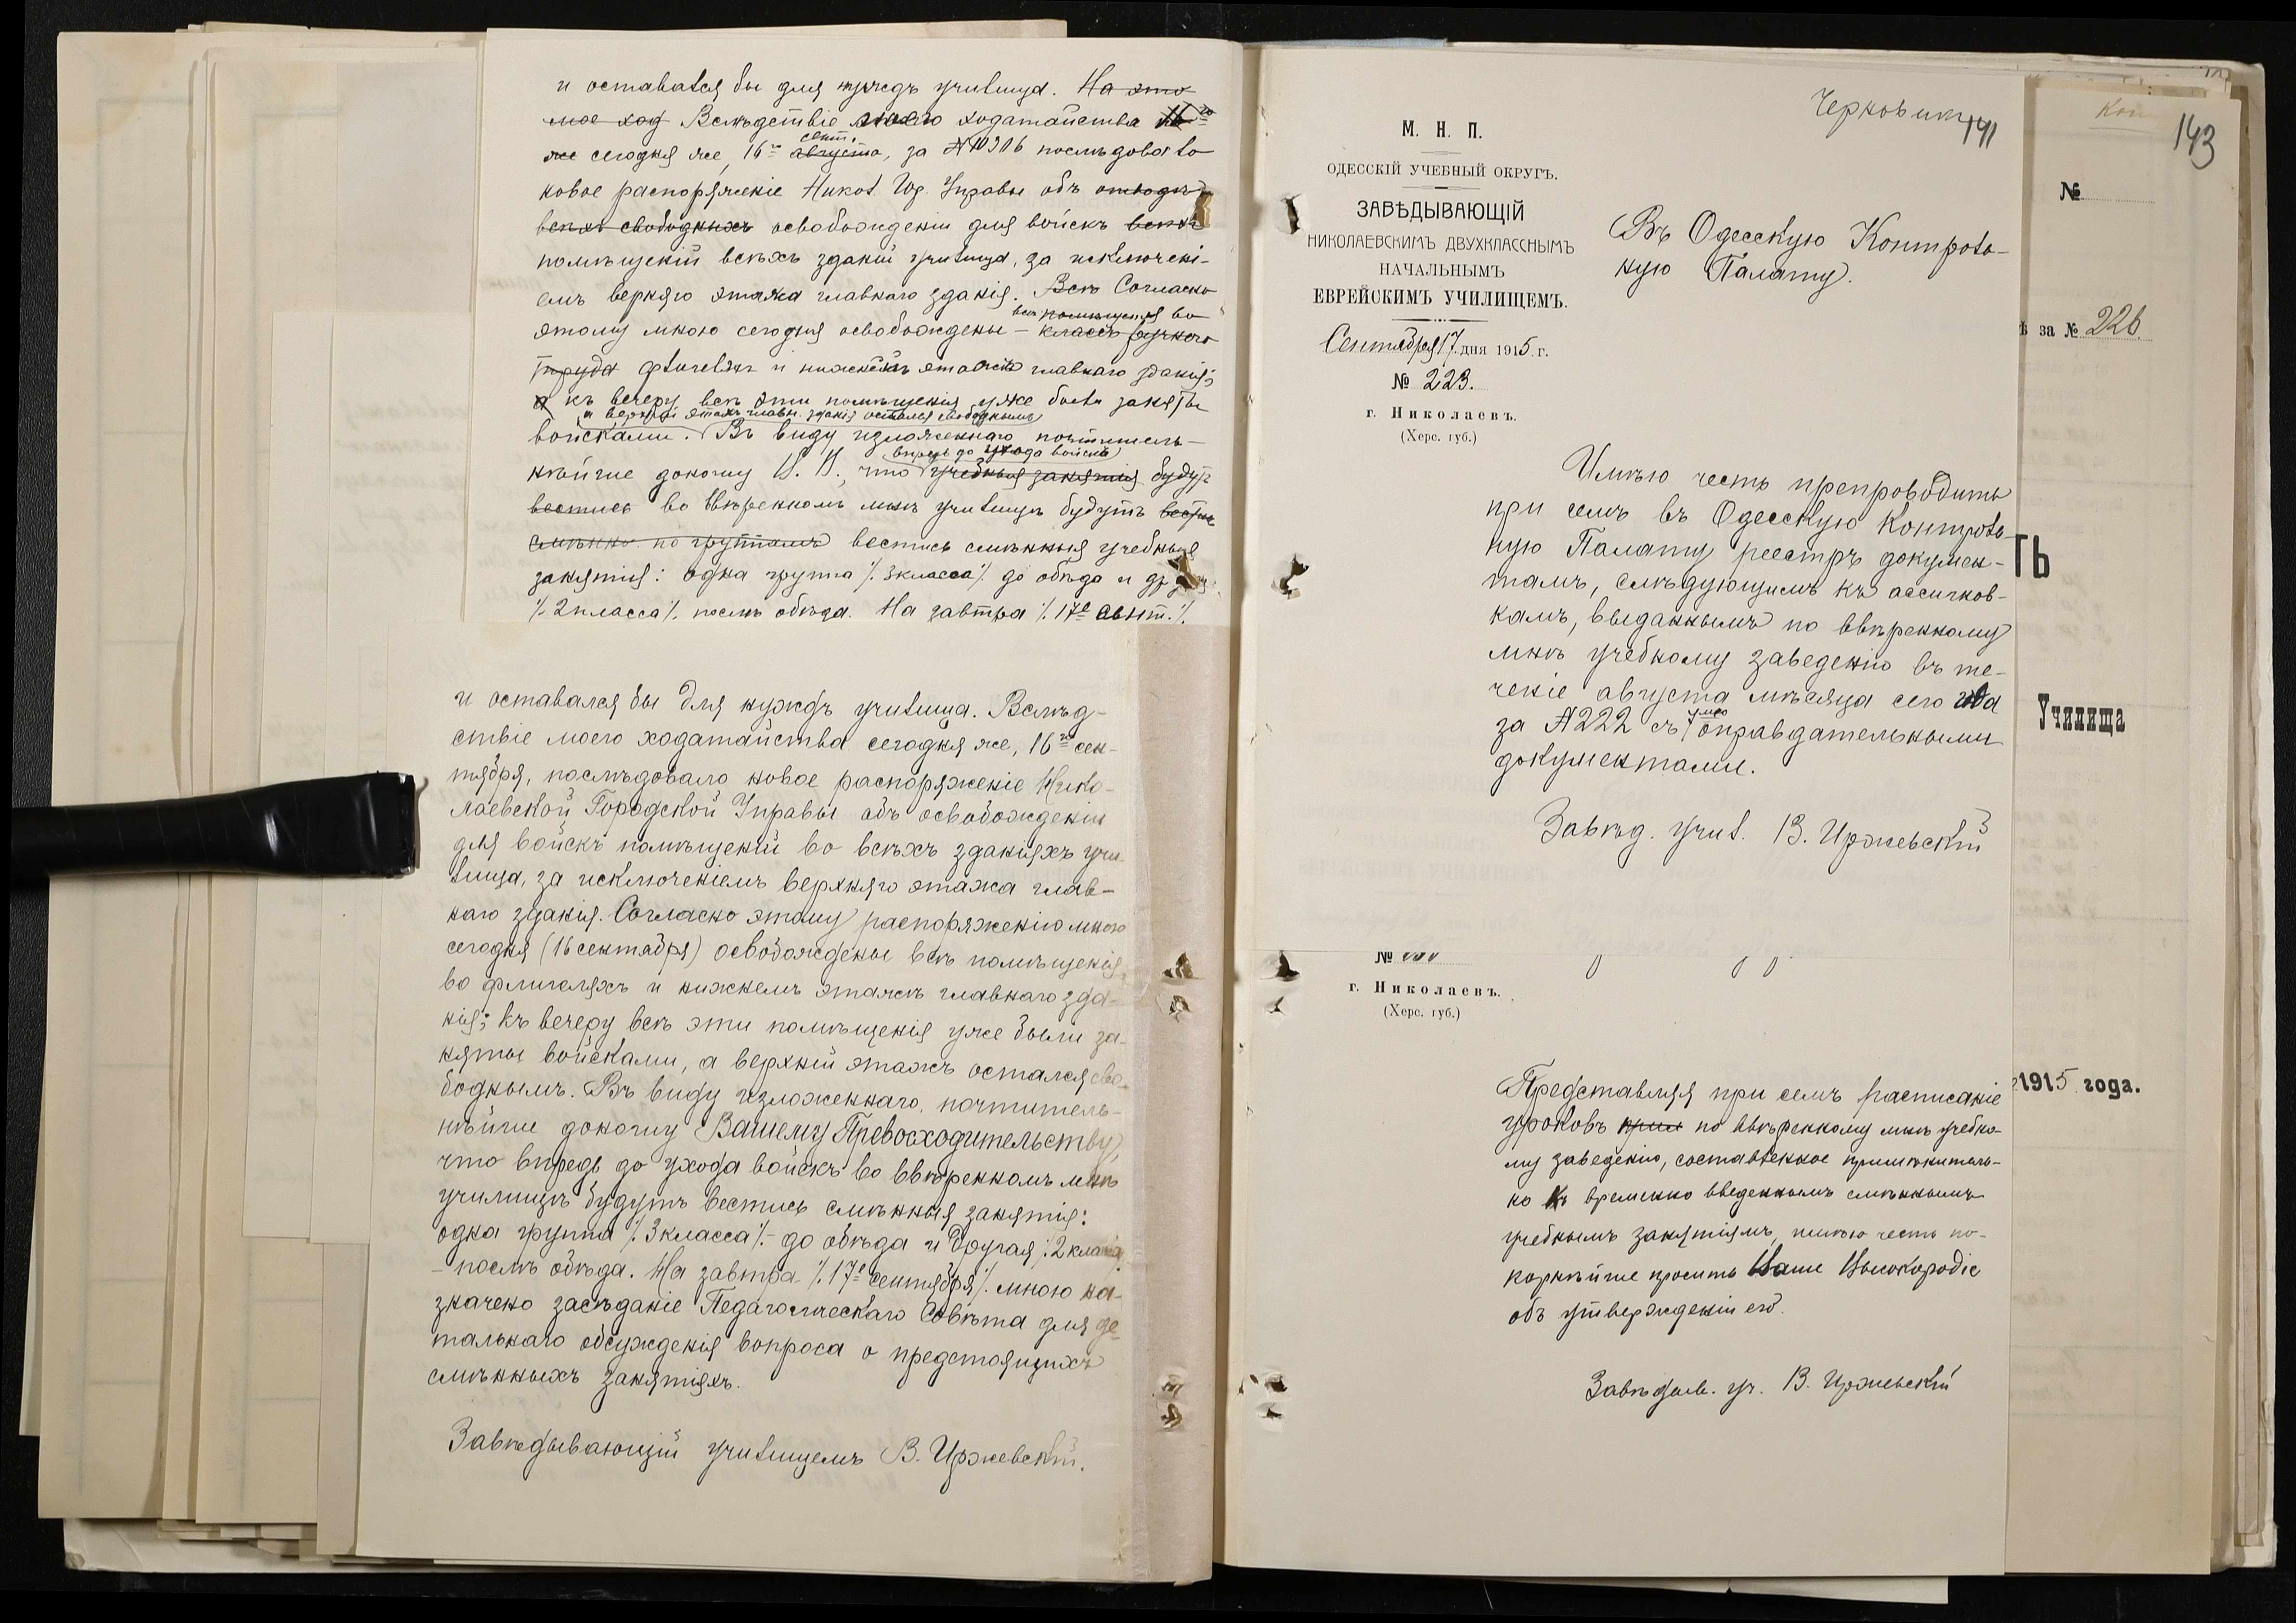 и оставался бы для нуждъ училища. На это
мое ход Вслѣдствіе моего ходатайства 16го
же сегодня же, 16го августа, сент. за №10906 послѣдовало
новое распоряженіе Никол. Гор. Управы объ
всѣхъ свободныхъ освобожденіи для войскъ всѣхъ
помѣщеній всѣхъ зданій училища, за исключені-
емъ верхняго этажа главнаго зданія. Всѣ Согласно
этому мною сегодня освобождены – классъ ручного всѣ помѣщенія во
труда флигеляхъ и нижнемъ этажѣ главнаго зданія;
а къ вечеру всѣ эти помѣщенія уже были заняты
а верхній этажъ главн. зданія остался свободнымъ
войсками. Въ виду изложеннаго почтитель-
нѣйше доношу В. П., что учебныя занятія впредь до ухода войскъ будутъ
вестись во ввѣренномъ мнѣ училищѣ будутъ вестись
смѣнно по группамъ вестись смѣнныя учебныя
занятія: одна группа /. 3 класса /. до обѣда и другая
/. 2 класса /. послѣ обѣда. На завтра /. 17е сент. /.
и оставался бы для нуждъ училища. Вслѣд-
ствіе моего ходатайства сегодня же, 16го сен-
тября, послѣдовало новое распоряженіе Нико-
лаевской Городской Управы объ освобожденіи
для войскъ помѣщеній во всѣхъ зданіяхъ учи-
лища, за исключеніемъ верхняго этажа глав-
наго зданія. Согласно этому распоряженію мною
сегодня (16 сентября) освобождены всѣ помѣщенія
во флигеляхъ и нижнемъ этажѣ главнаго зда-
нія; къ вечеру всѣ эти помѣщенія уже были за-
няты войсками, а верхній этажъ остался сво-
боднымъ. Въ виду изложеннаго, почтитель-
нѣйше доношу Вашему Превосходительству,
что впредь до ухода войскъ во ввѣренномъ мнѣ
училищѣ будутъ вестись смѣнныя занятія:
одна группа /. 3 класса /. – до обѣда и другая /. 2 класса
– послѣ обѣда. На завтра /. 17е сентября /. мною на-
значено засѣданіе Педагогическаго Совѣта для де-
тальнаго обсужденія вопроса о предстоящихъ
смѣнныхъ занятіяхъ.
Завѣдывающій училищемъ В. Иржевскій.
Черновик
141
М. Н. П.
ОДЕССКІЙ УЧЕБНЫЙ ОКРУГЪ.
ЗАВѢДЫВАЮЩІЙ
НИКОЛАЕВСКИМЪ ДВУХКЛАССНЫМЪ
НАЧАЛЬНЫМЪ
ЕВРЕЙСКИМЪ УЧИЛИЩЕМЪ.
Сентября 17 дня 1915 г.
№ 223.
г. Николаевъ.
(Херс. губ.)
Въ Одесскую Контроль-
ную Палату.
Имѣю честь препроводить
при семъ въ Одесскую Контроль-
ную Палату реестръ докумен-
тамъ, слѣдующимъ къ ассигнов-
камъ, выданнымъ по ввѣренному
мнѣ учебному заведенію въ те-
ченіе августа мѣсяца сего года
за №222 съ 7мью оправдательными
документами.
Завѣд. учил. В. Иржевскій
№
г. Николаевъ.
(Херс. губ.)
Представляя при семъ расписаніе
уроковъ по ввѣренному мнѣ учебно-
му заведенію, составленное примѣнитель-
но къ временно введеннымъ смѣннымъ
учебнымъ занятіямъ, имѣю честь по-
корнѣйше просить Ваше Высокородіе
объ утвержденіи его.
Завѣдыв. уч. В. Иржевскій
Коп
143
№
ѣ за № 226.
ТЬ
Училища
1915 года.